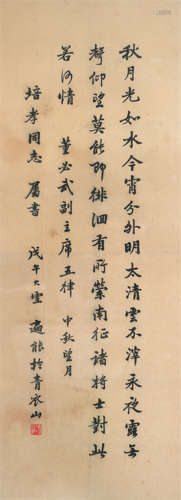 秋月光如水今宵分外明太清雲不滓永夜露無
聲仰望莫能即徘徊有所縈南征諸將士對此
若何情　董必武副主席五律　中秋望月
培孝同志　屬書　戊午大雪　遍能於青衣山